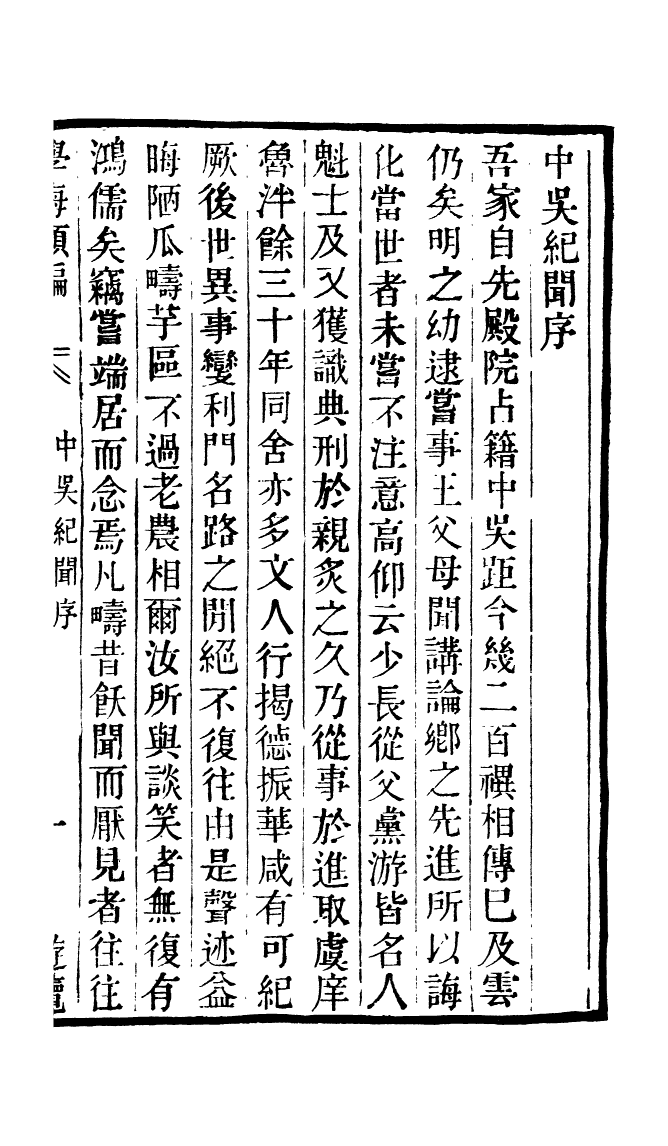 中吳紀聞序
吾家自先殿院占籍中吳距今幾二百禩相傳巳及雲
仍矣明之幼逮嘗事王父母聞講論鄉之先進所以誨
化當世者未嘗不注意高仰云少長從父黨游皆名人
魁士及又獲識典刑於親炙之久乃從事於進取虞庠
魯泮餘三十年同舍亦多文人行揭德振華咸有可紀
厥後世異事變利門名路之閒絕不復往由是聲迹益
晦陋瓜疇芋區不過老農相爾汝所與談笑者無復有
鴻儒矣竊嘗端居而念焉凡疇昔飫聞而厭見者往往
學海類編 中吳紀聞序 一 遊覽